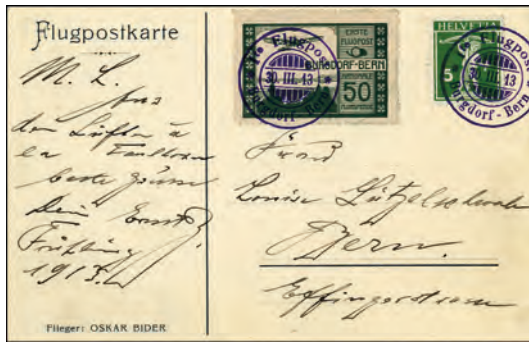 Flugpostkarte
M. L.
Aus
den Lüften
beste Grüsse
Dein Ernst
Frühling
1913.
Flieger: OSKAR BIDER
ERSTE
FLUGPOST
BURGDORF-BERN
NATIONALE
50
FLUGSPENDE
1te Flugpost
30. III. 13
Burgdorf-Bern
HELVETIA
5
1te Flugpost
30. III. 13
Burgdorf-Bern
Louise Lützelschwab
Bern.
Effingerstrasse